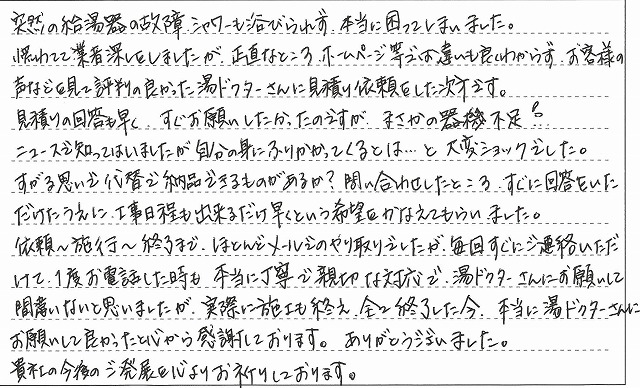 突然の給湯器の故障、シャワーも浴びられず、本当に困ってしまいました。
慌わてて業者探しをしましたが、正直なところ、ホームページ等でお違いも良くわからず、お客様の
声などを見て評判の良かった湯ドクターさんに見積り依頼をした次第です。
見積りの回答も早く、すぐお願いしたかったのですが、まさかの器機不足!?
ニュースで知ってはいましたが自分の身にふりかかってくるとは…と大変ショックでした。
すがる思いで代替で納品できるものがあるか？問い合わせしたところ、すぐに回答をいた
だけたうえに、工事日程も出来るだけ早くという希望をかなえてもらいました。
依頼～施行～終了まで、ほとんどメールでのやり取りでしたが、毎回すぐにご連絡いただ
けて、1度お電話した時も、本当に丁寧で親切な対応で、湯ドクターさんにお願いして
間違いないと思いましたが、実際に施工も終え、全て終了した今、本当に湯ドクターさんに
お願いして良かったと心から感謝しております。ありがとうございました。
貴社の今後のご発展を心よりお祈りしております。